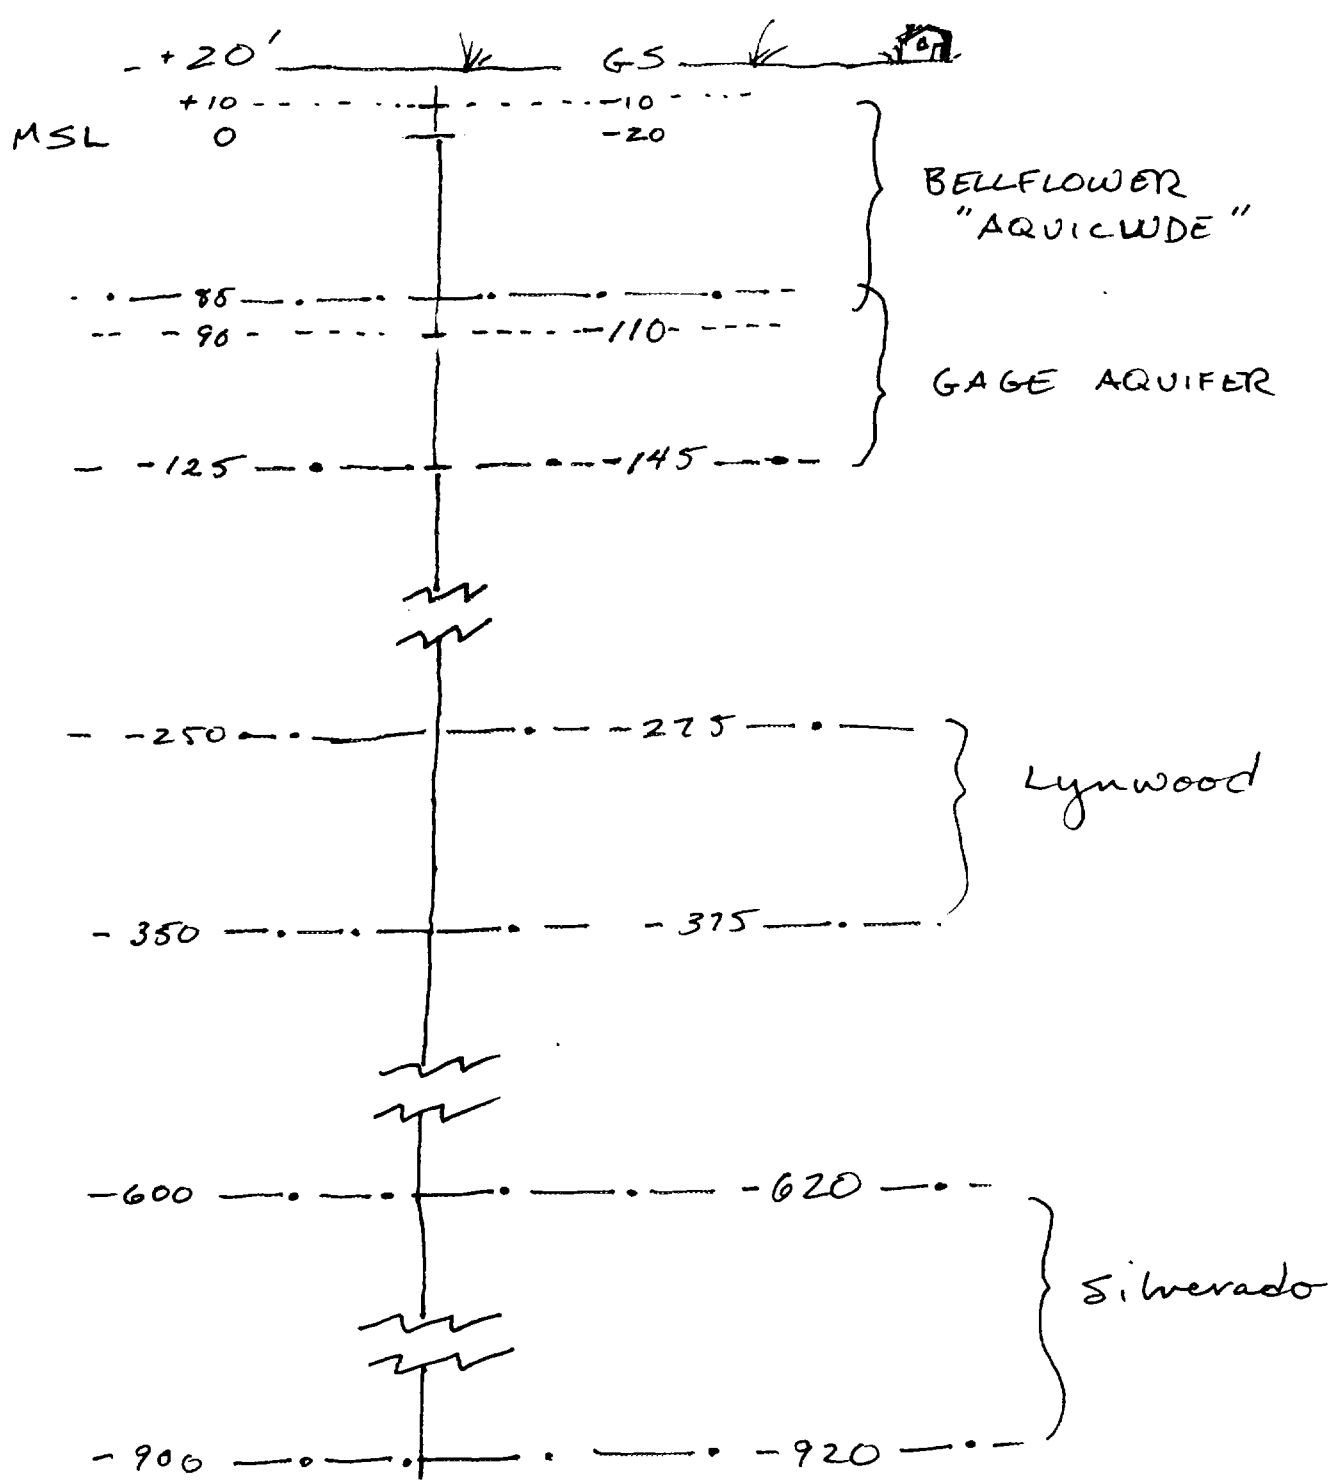 +20' GS
+10 -10
MSL 0 -20
BELLFLOWER
"AQUICLUDE"
85
-90 -110
GAGE AQUIFER
-125 -145
-250 -275
Lynwood
-350 -375
-600 -620
Silverado
-900 -920